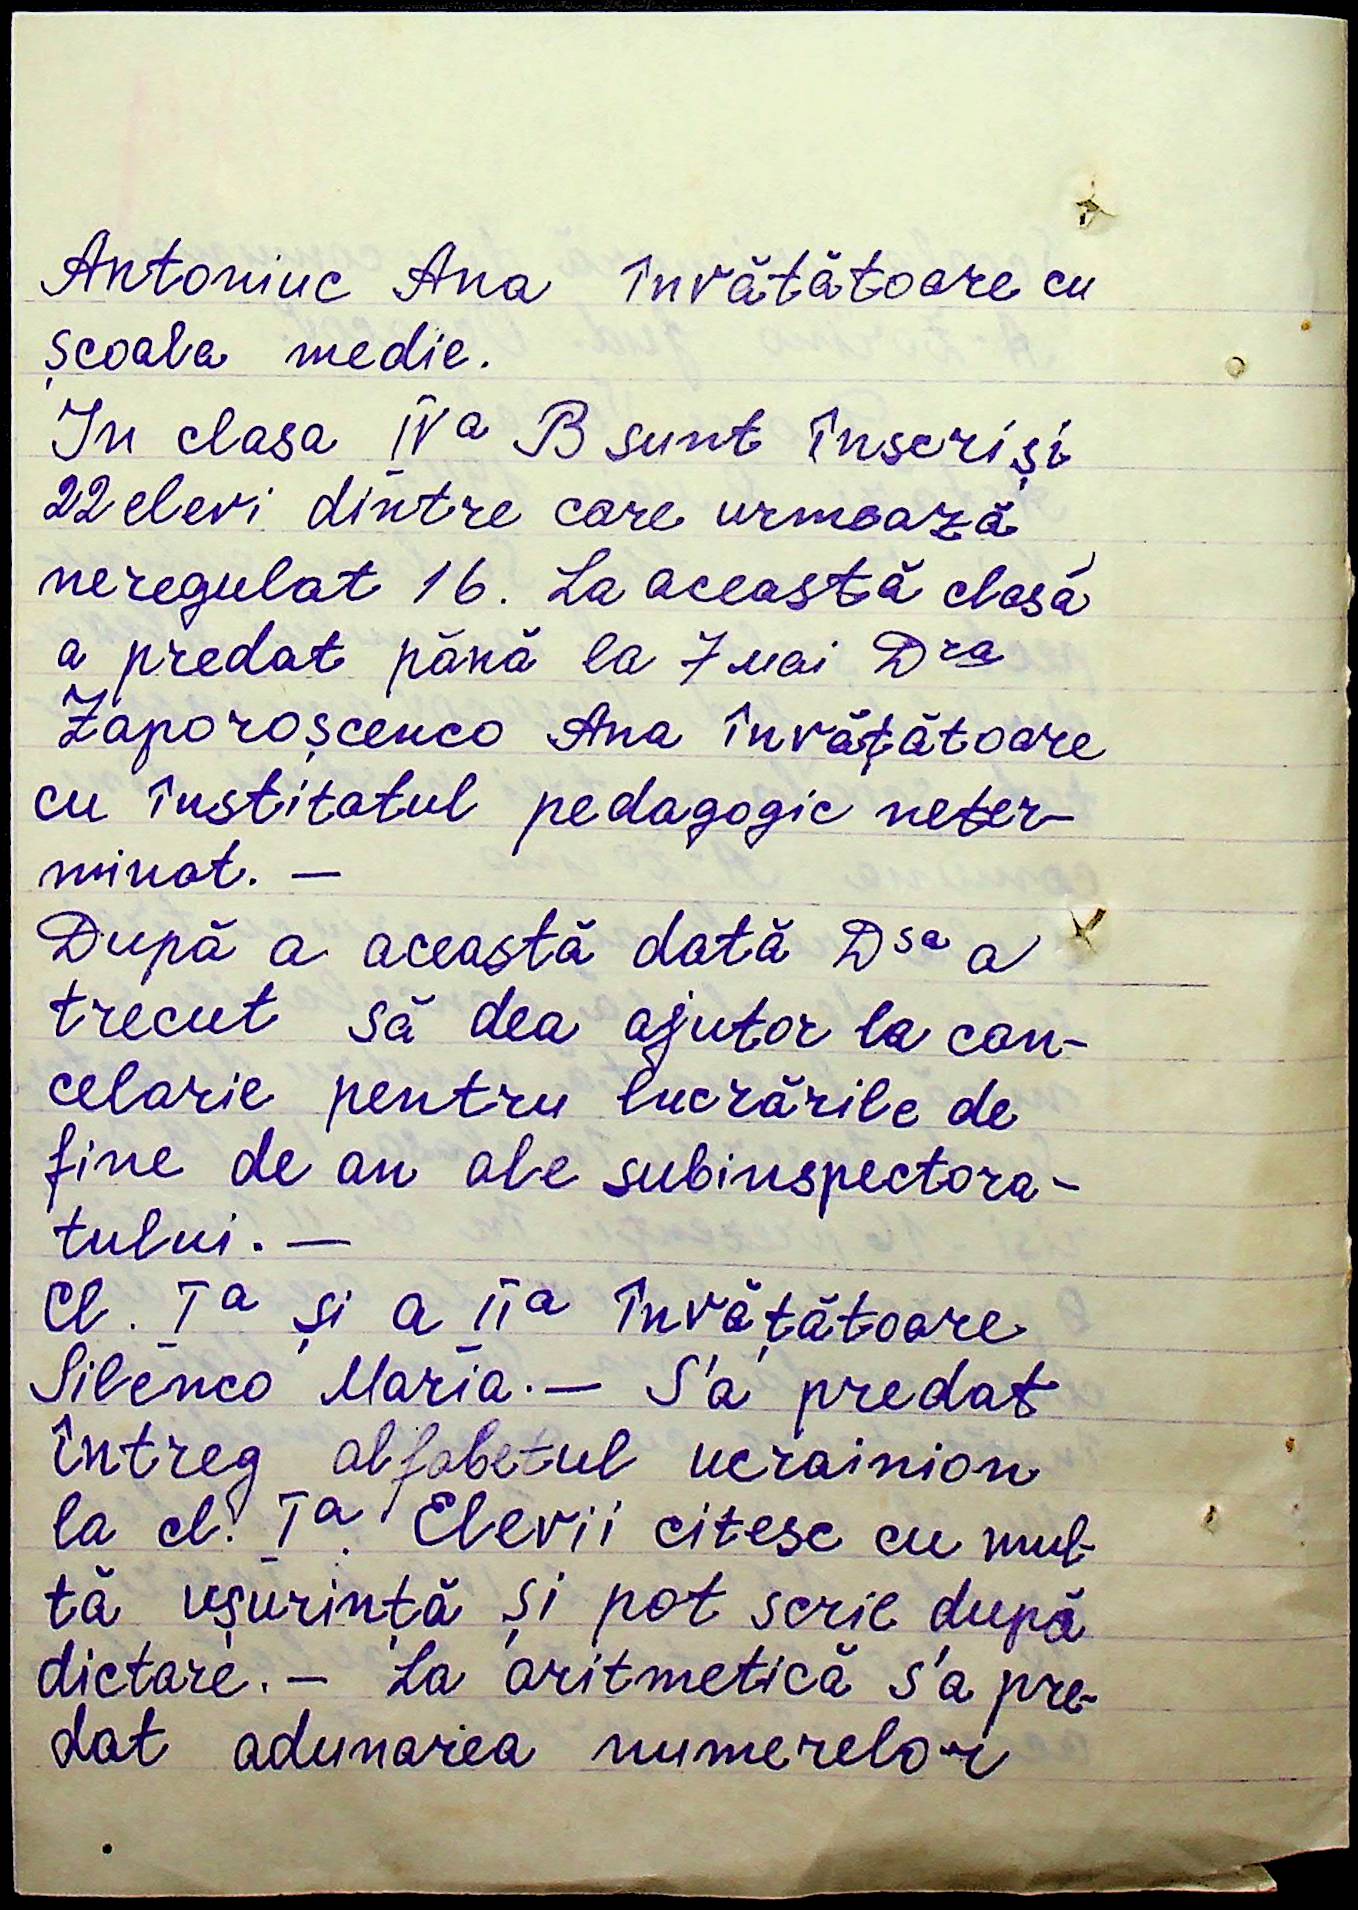 Antoniuc Ana învătătoare cu
școala medie.
In clasa IVa B sunt înscriși
22 elevi dintre care urmează
neregulat 16. La această clasă
a predat până la 7 mai Dra
Zaporoșcenco Ana învățătoare
cu institutul pedagogic neter-
minat. —
După a această dată Dsa a
trecut să dea ajutor la can-
celarie pentru lucrările de
fine de an ale subinspectora-
tului. —
Cl. Ia și a IIa învățătoare
Silenco Maria. — S'a predat
întreg alfabetul ucrainian
la cl. Ia. Elevii citesc cu mul-
tă ușurință și pot scrie după
dictare. — La aritmetică s'a pre-
dat adunarea numerelor